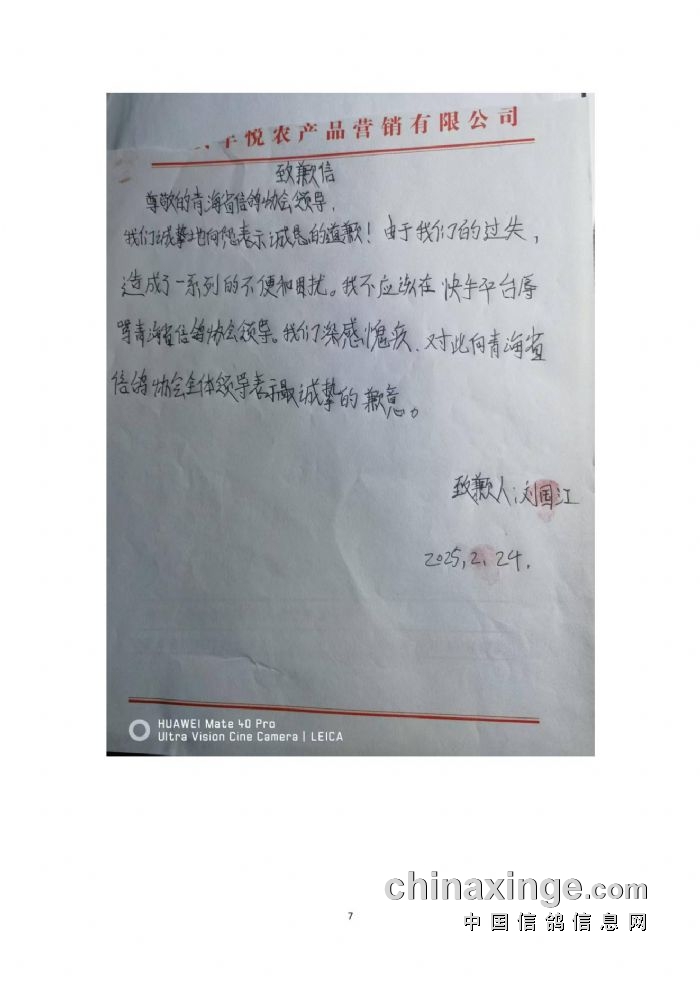 悦农产品营销有限公司
致歉信
尊敬的青海省信鸽协会领导，
我们诚挚地向您表示诚恳的道歉！由于我们的过失，
造成了一系列的不便和困扰。我不应该在快手平台辱
骂青海省信鸽协会领导。我们深感愧疚，对此向青海省
信鸽协会全体领导表示最诚挚的歉意。
致歉人：刘国江
2025.2.24.
HUAWEI Mate 40 Pro
Ultra Vision Cine Camera | LEICA
chinaxinge.com
中国信鸽信息网
7